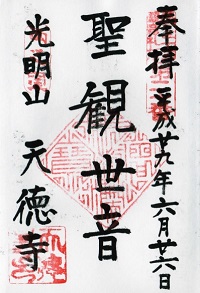 奉拝 平成廿九年六月廿六日
聖観世音
光明山 天徳寺